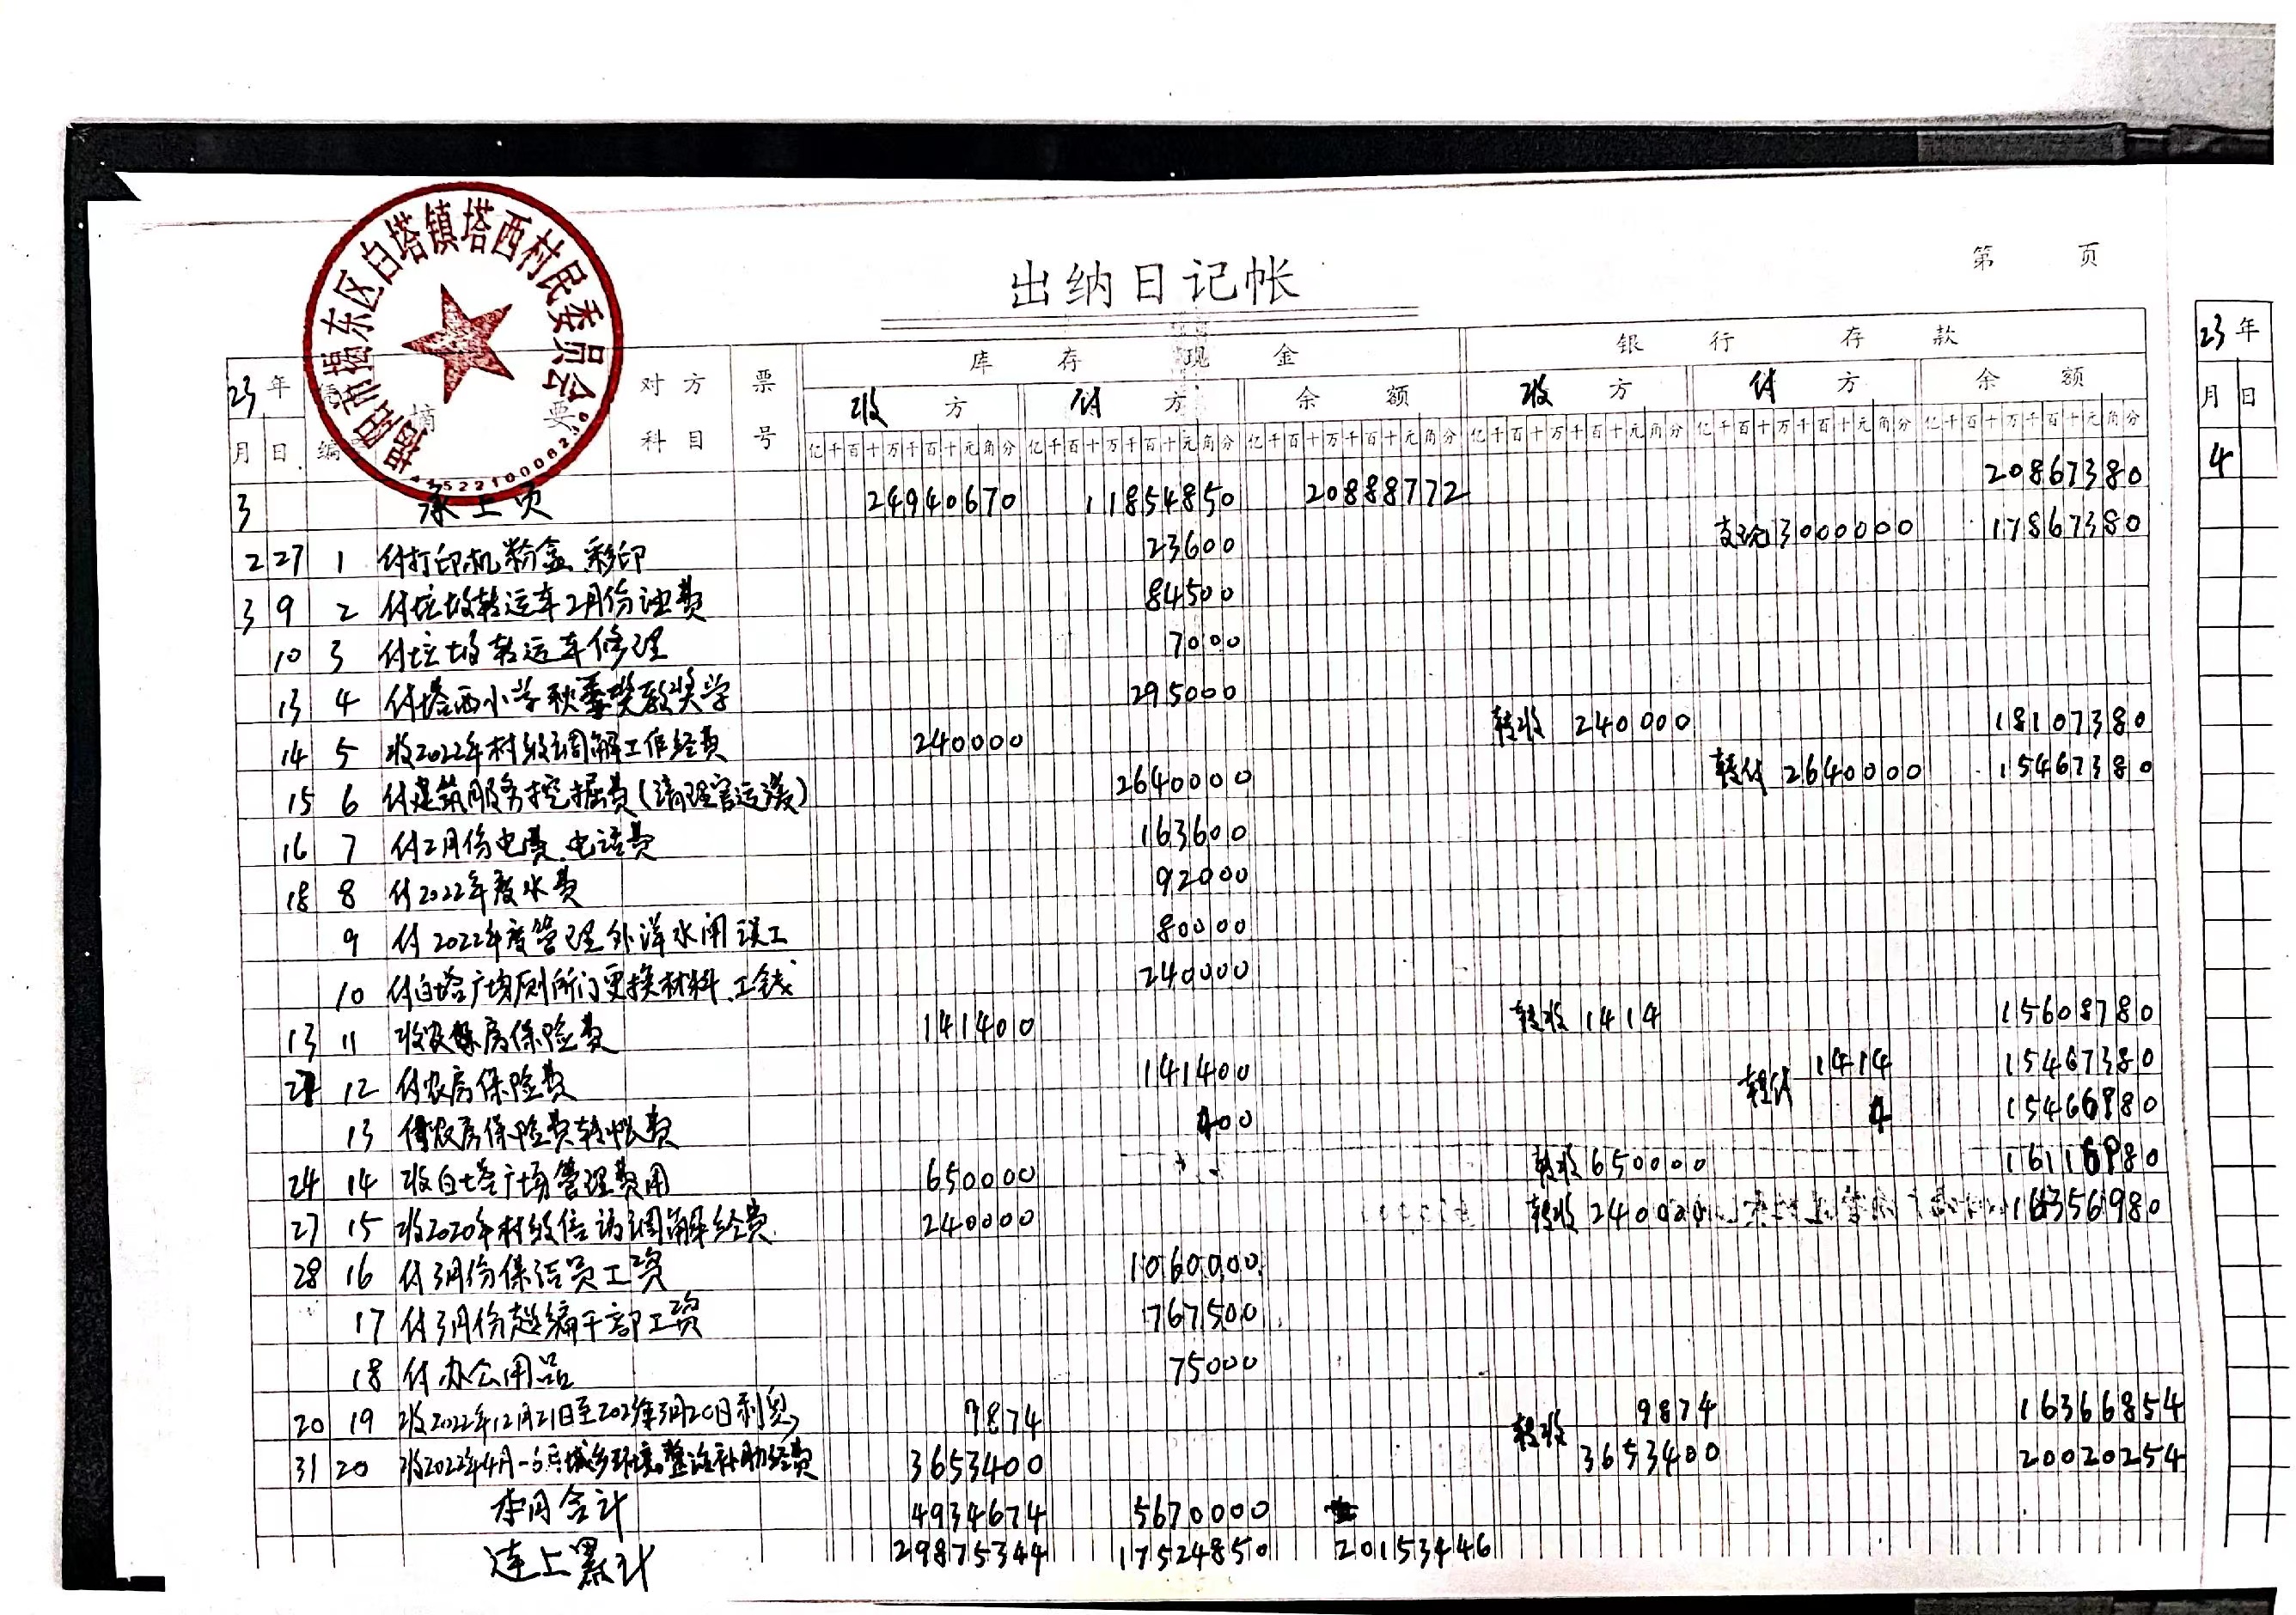 揭阳市揭东区白塔镇塔西村民委员会
4452210006230
出纳日记帐
第 页
23年 凭证 摘要 对方科目 票号 库存现金 银行存款 23年
月 日 编号 收方 付方 余额 收方 付方 余额 月 日
亿千百十万千百十元角分 亿千百十万千百十元角分 亿千百十万千百十元角分 亿千百十万千百十元角分 亿千百十万千百十元角分 亿千百十万千百十元角分
3 承上页 24940670 11854850 20888772 20867380 4
2 27 1 付打印机粉盒、彩印 23600 支现 3000000 17867380
3 9 2 付垃圾转运车2月份油费 84500
10 3 付垃圾转运车修理 7000
13 4 付塔西小学秋季奖教奖学 295000
14 5 收2022年村级调解工作经费 240000 转收 240000 18107380
15 6 付建筑服务挖掘费(清理官运溪) 2640000 转付 2640000 15467380
16 7 付2月份电费、电话费 163600
18 8 付2022年度水费 92000
9 付2022年度管理外洋水闸误工 80000
10 付白塔广场厕所门更换材料、工钱 240000
13 11 收农房保险费 141400 转收 1414 15608780
21 12 付农房保险费 141400 转付 1414 15467380
13 付农房保险费转帐费 400 4 15466980
24 14 收白塔广场管理费用 650000 转收 650000 16116980
27 15 收2020年村级信访调解经费 240000 转收 240000 16356980
28 16 付3月份保洁员工资 1060000
17 付3月份超编干部工资 767500
18 付办公用品 75000
20 19 收2022年12月21日至2023年3月20日利息 9874 转收 9874 16366854
31 20 收2022年4月-6月城乡环境整治补助经费 3653400 3653400 20020254
本月合计 4934674 5670000
连上累计 29875344 17524850 20153446